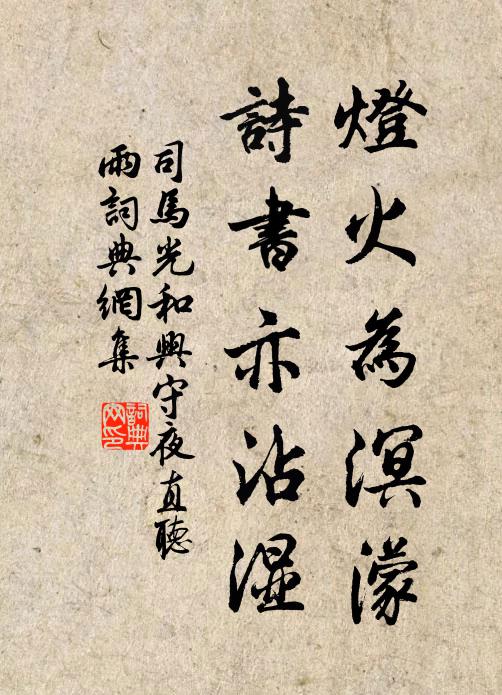 燈火為溟濛
詩書亦沾濕
司馬光和興守夜直聽
雨詞典網集
詞典網印